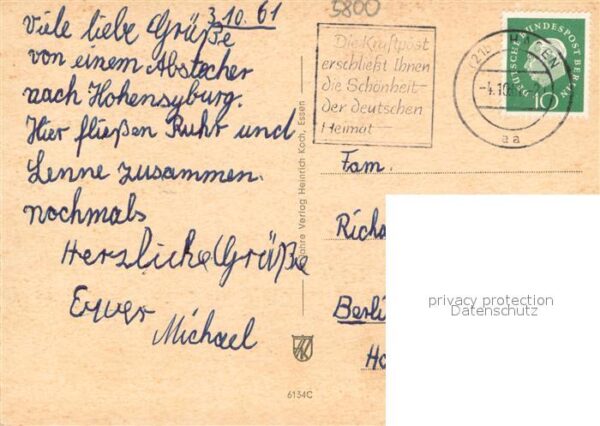 3.10.61
Viele liebe Grüße
von einem Abstecher
nach Hohensyburg.
Hier fließen Ruhr und
Lenne zusammen.
nochmals
Herzliche Grüße
Euer
Michael
5800
Die Kraftpost
erschließt Ihnen
die Schönheit
der deutschen
Heimat
DEUTSCHE BUNDESPOST BERLIN
10
aa
Verlag Heinrich Koch, Essen
6134C
Fam.
Berli
privacy protection
Datenschutz